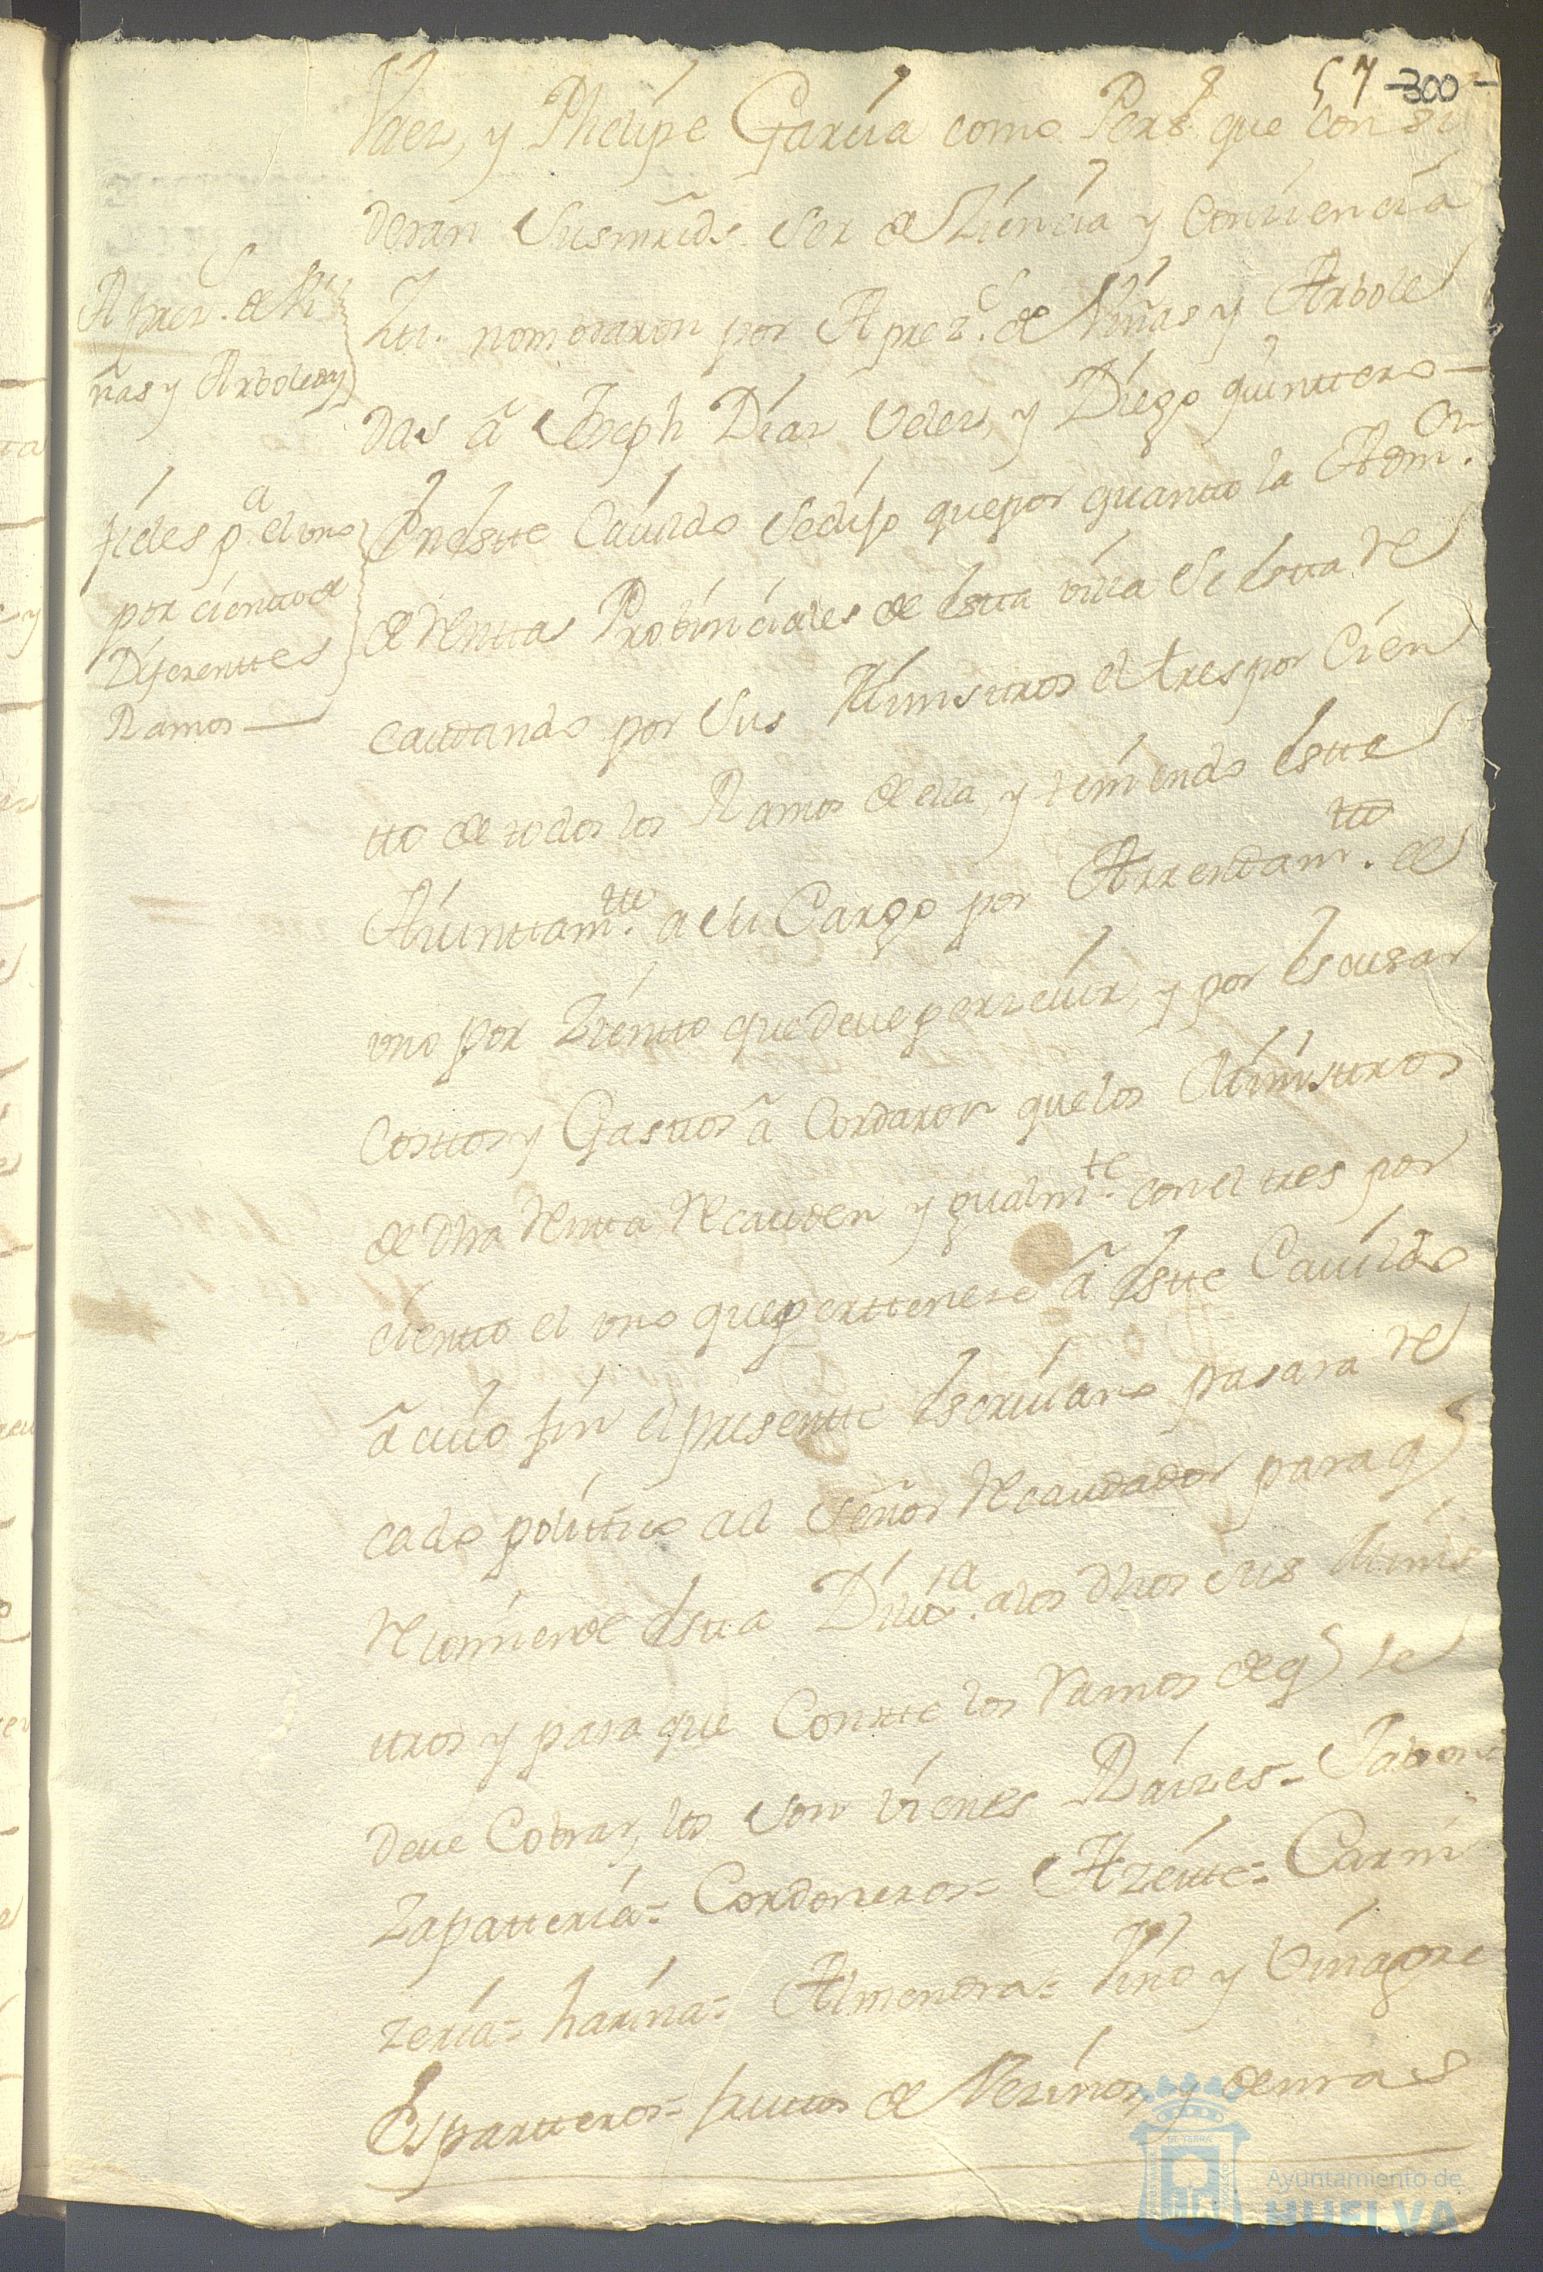 57 -300-
Vaez, y Phelipe Garcia como Pers.s que consi
deran Susmrds. Ser de Ziencia y Conziencia
Itt. nombraron por Aprez.s de Viñas y Arbole
das â Joseph Diaz Velez, y Diego quinttero—
Aprez.s de Vi
ñas y Arboledas
En estte Cauildo Sedijo quepor quantto la Adm.on
de Renttas Probinciales de estta villa Se estta Re
caudando por Sus Ministros el tres por Cien
tto de todos los Ramos de ella, y teniendo estte
Aiunttam.tto a su Cargo por Arrendam.tto el
uno por Zientto que deue perzeuir, y por escusar
Costtos y Gasttos âCordaron quelos Ministtros
de dha Rentta Recauden ygualm.te con el tres por
cientto el uno que pertteneze â estte Cauildo
â cuio fin el presentte escriuano pasara Re
cado politico al Señor Recaudador para q
Recomiende estta Dilix.a alos dhos sus Minis
ttros y para que Constte los Ramos de q se
deue Cobrar, los son vienes Raizes= Jabon=
Zapatteria= Cordoneros= Azeitte= Carni
zeria= harina= Almendra= Vino y Vinagre
Espartteros= fruttos de Vezinos, y demas
fieles p.a el uno
por cientto de
Diferenttes
Ramos—
Ayuntamiento de
HUELVA